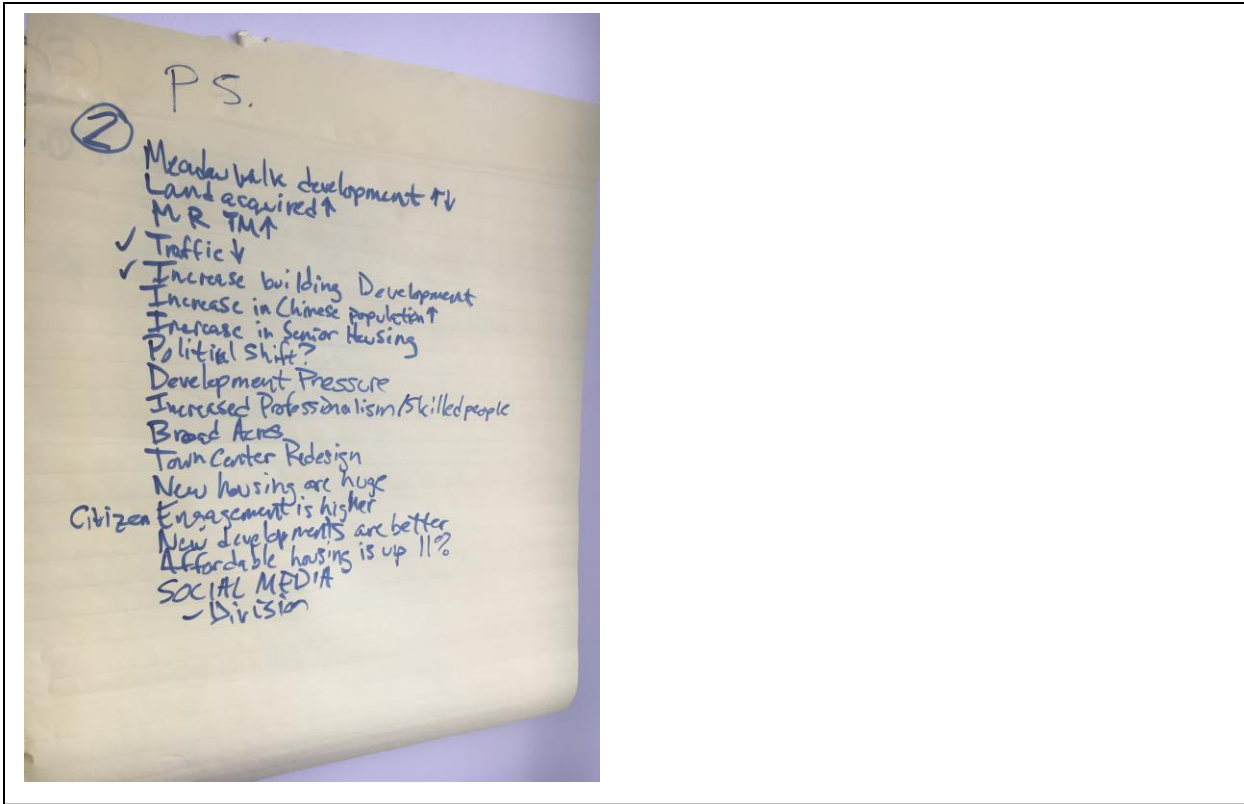 P S.
2
Meadow walk development ↑↓
Land acquired ↑
M R TM ↑
✓ Traffic ↓
✓ Increase building Development
Increase in Chinese population ↑
Increase in Senior Housing
Political Shift?
Development Pressure
Increased Professionalism/Skilled people
Broad Acres
Town Center Redesign
New housing are huge
Citizen Engagement is higher
New developments are better
Affordable housing is up 11?
SOCIAL MEDIA
- Division